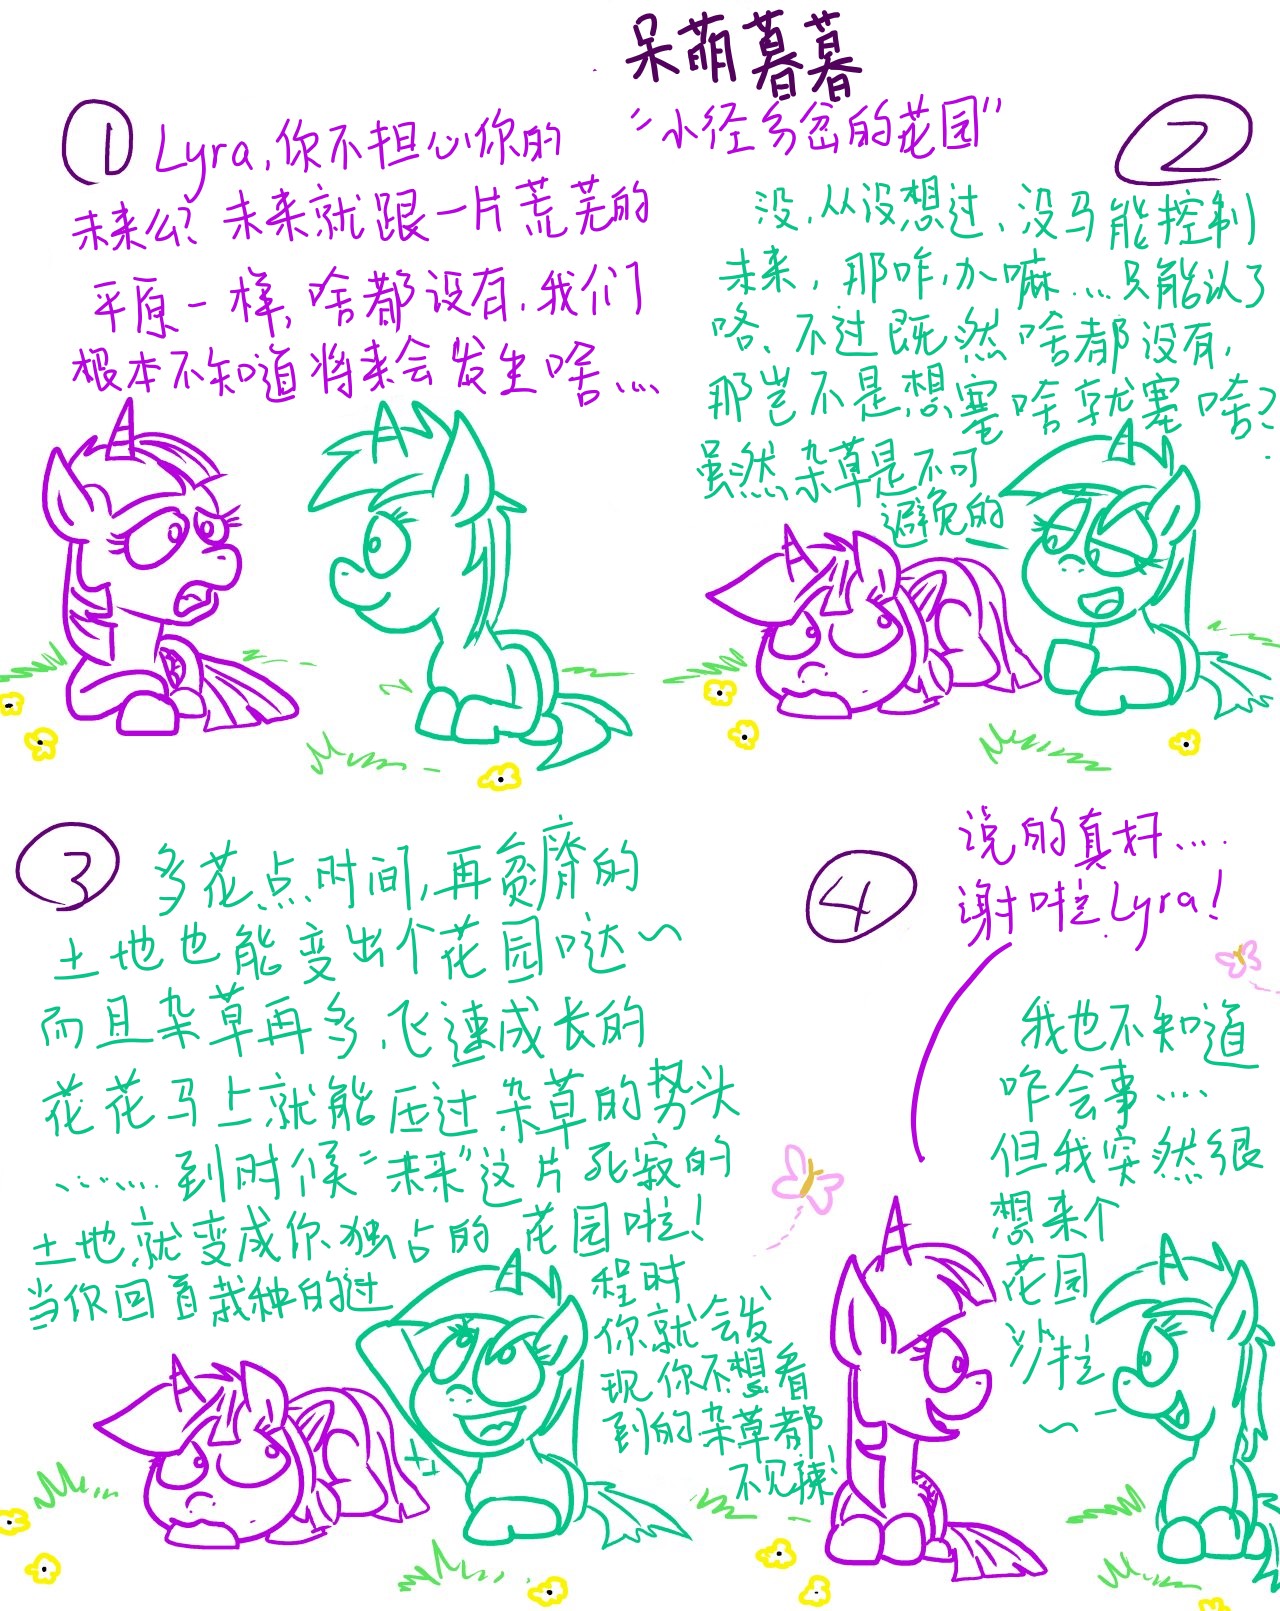 呆萌暮暮
"小径分岔的花园"
1
Lyra,你不担心你的
未来么?未来就跟一片荒芜的
平原一样,啥都没有,我们
根本不知道将来会发生啥....
2
没,从没想过,没马能控制
未来,那咋办嘛...只能认了
咯、不过既然啥都没有,
那岂不是想塞啥就塞啥?
虽然杂草是不可
避免的
3
多花点时间,再贫瘠的
土地也能变出个花园哒~
而且杂草再多,飞速成长的
花花马上就能压过杂草的势头
.......到时候"未来"这片死寂的
土地就变成你独占的花园啦!
当你回首栽种的过
程时
你就会发
现你不想看
到的杂草都
不见辣!
4
说的真好....
谢啦Lyra!
我也不知道
咋会事....
但我突然很
想来个
花园
沙拉
~